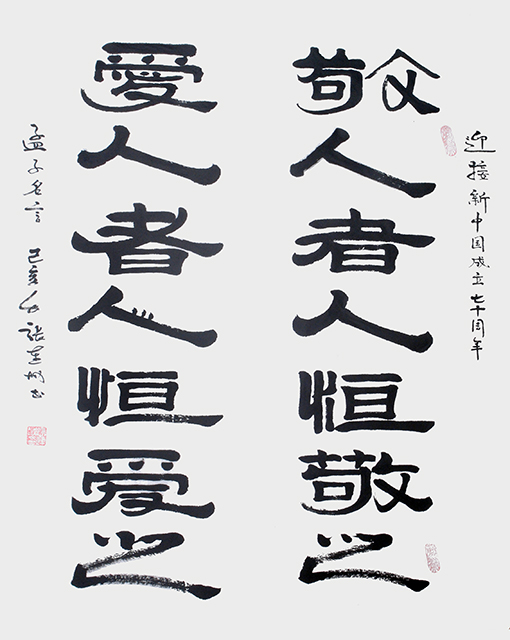 迎接新中国成立七十周年
敬人者人恒敬之
愛人者人恒爱之
孟子名言 己亥 張 书